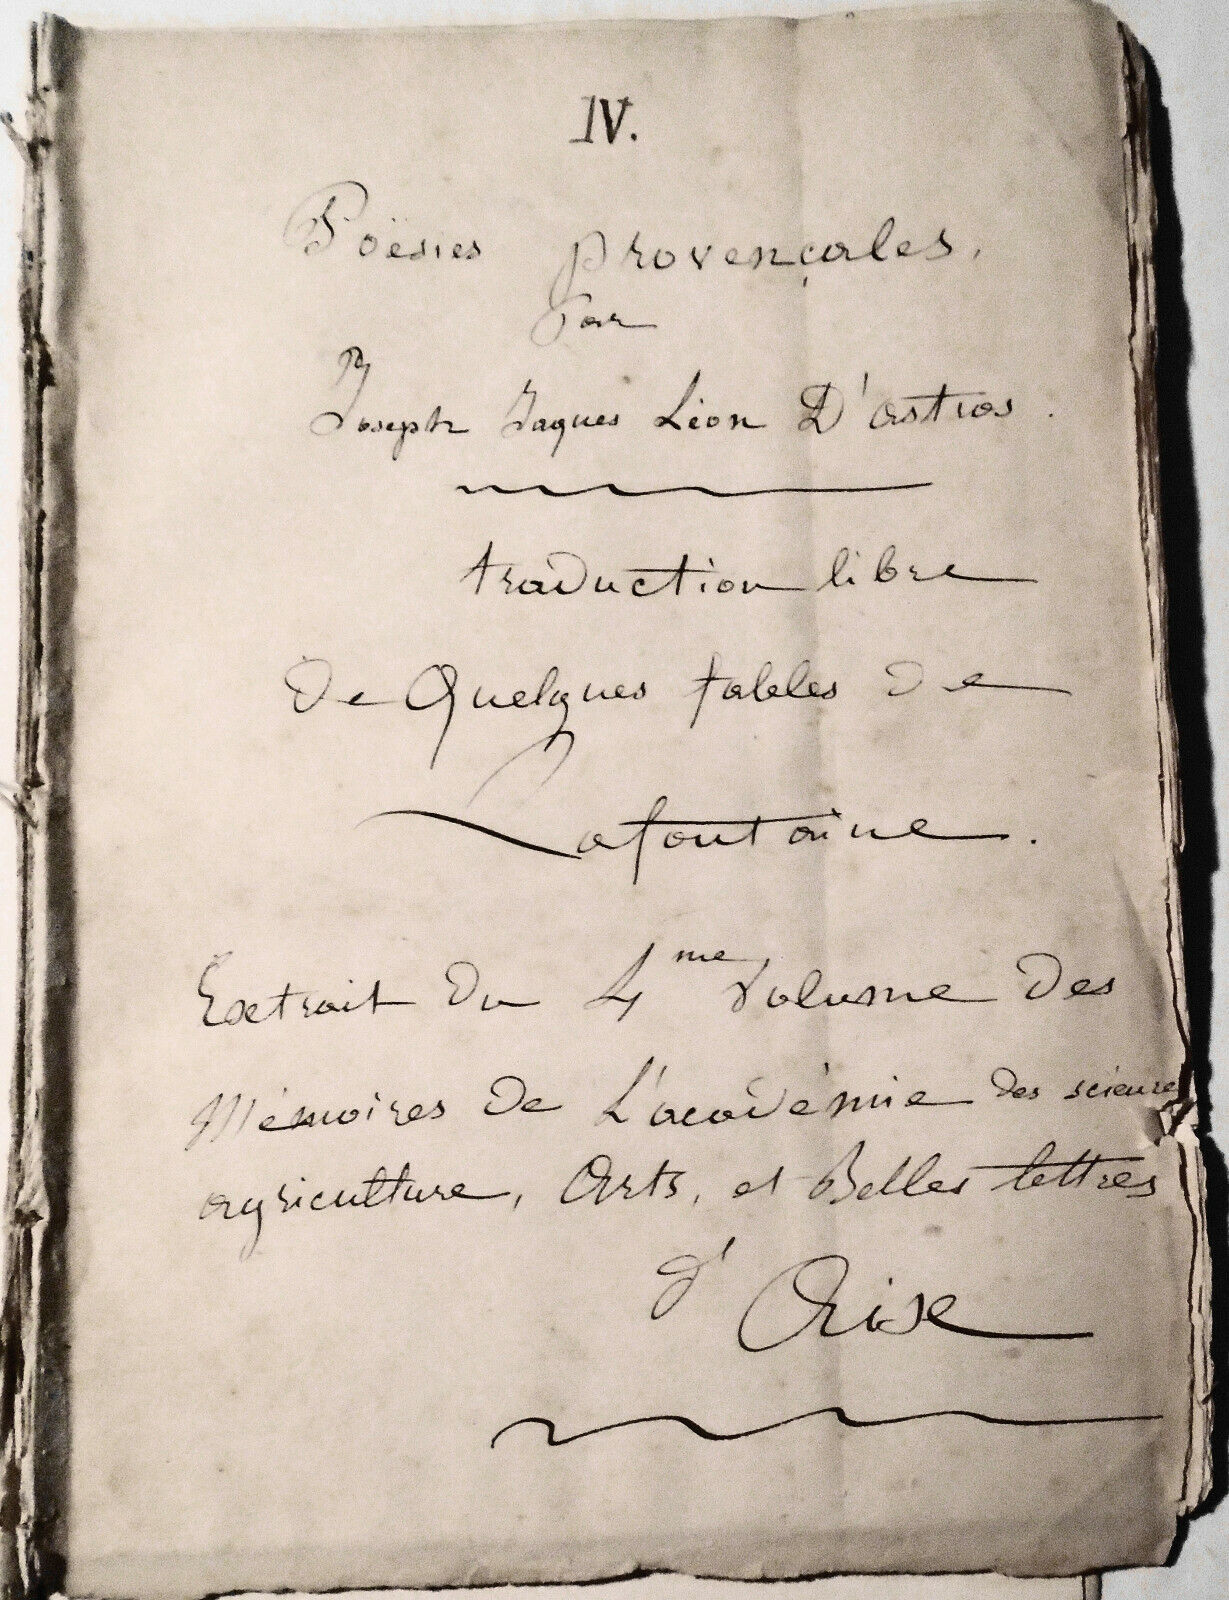 IV.
Poësies provençales,
Par
Joseph Jaques Léon D'astros.
traduction libre
De Quelques fables de
Lafontaine.
Extrait Du 4me Volume Des
Mémoires De L'académie Des science
agriculture, Arts, et Belles lettres
d'Aix